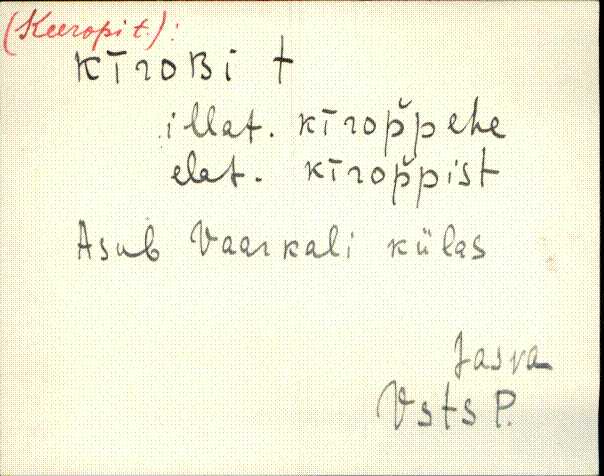 (Keeropi t.):
kīroʙi t
illat. kīrop̆pehe
elat. kīrop̆pist
Asub Vaarkali külas
Jasva
Vsts P.